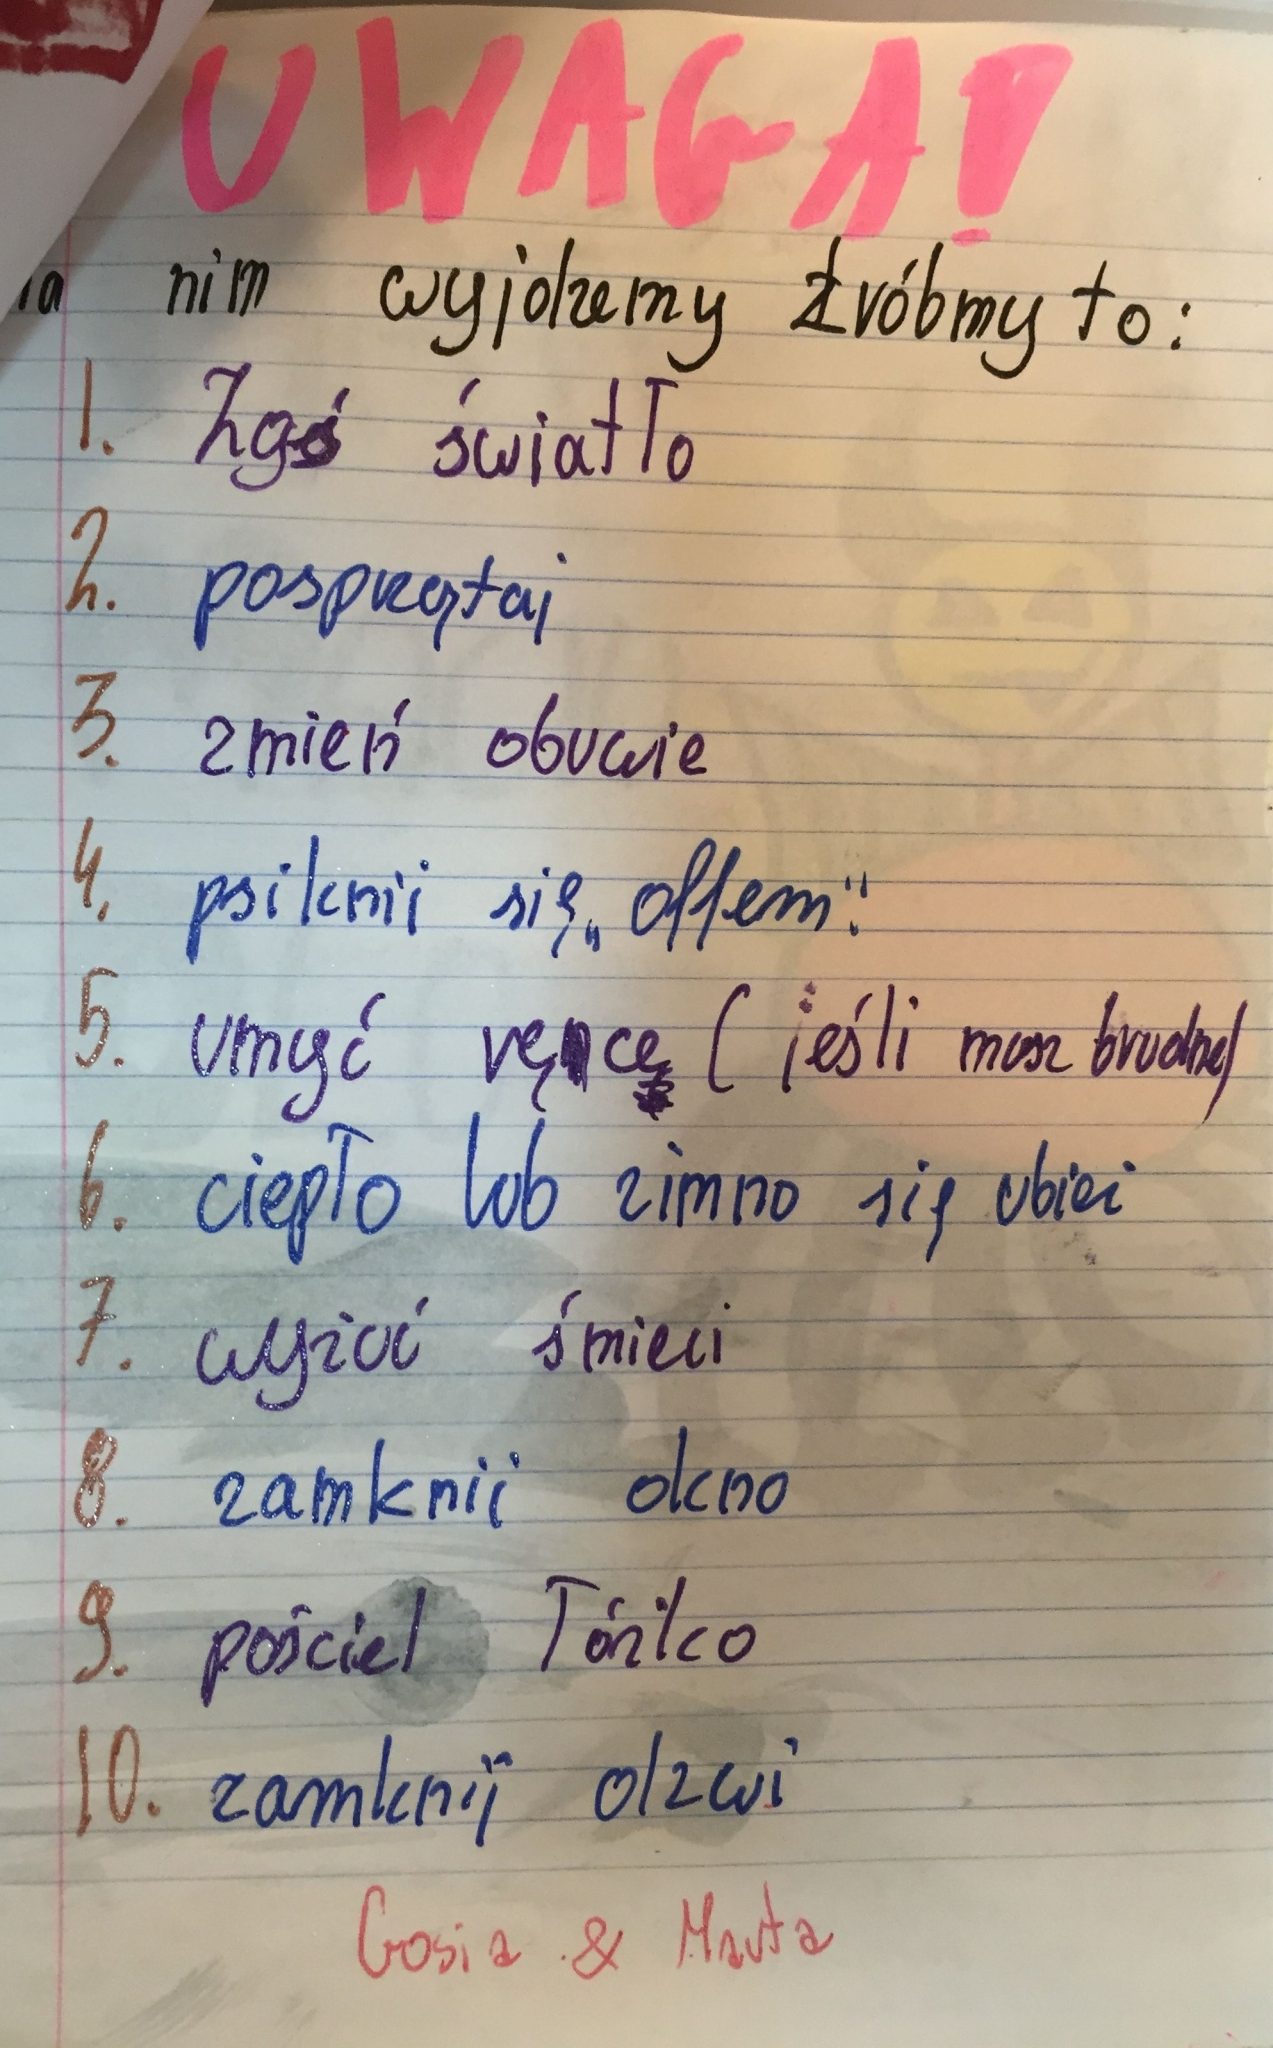 UWAGA!
nim wyjdzemy zróbmy to:
1. Zgś światło
2. posprzątaj
3. zmień obuwie
4. psiknij się „offem".
5. umyć ręncę (jeśli masz brudne)
6. ciepło lub zimno się ubiei
7. wyzuć śmieci
8. zamknij okno
9. pościel łóżko
10. zamknij dzwi
Gosia & Marta